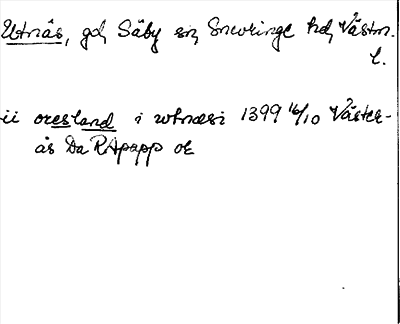 Utnäs, gd, Säby sn, Snevringe hd, Västm.
l.
ii oresland i utnæsi 1399 16/10 Väster-
ås Da RApapp or